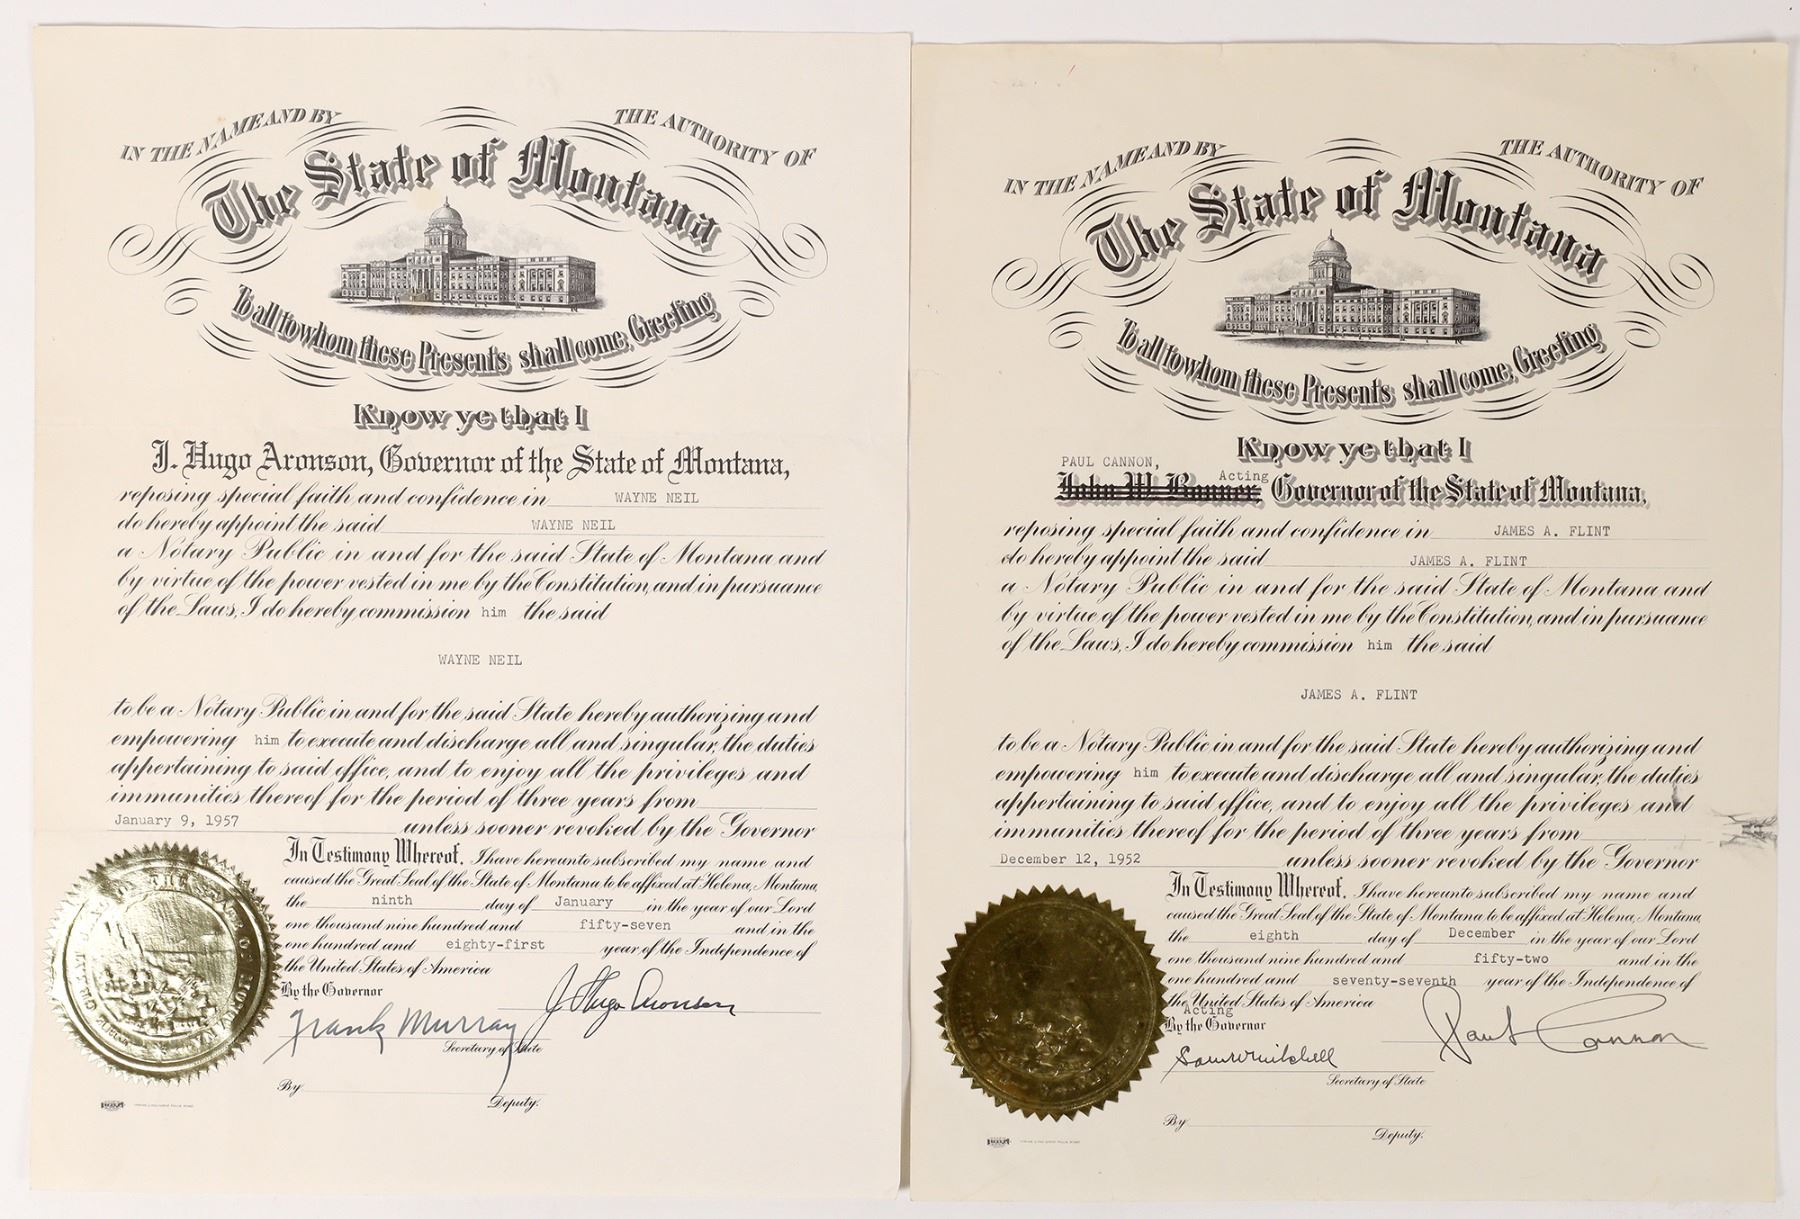 IN THE NAME AND BY THE AUTHORITY OF
The State of Montana
To all to whom these Presents shall come, Greeting
Know ye that I
J. Hugo Aronson, Governor of the State of Montana,
reposing special faith and confidence in WAYNE NEIL
do hereby appoint the said WAYNE NEIL
a Notary Public in and for the said State of Montana and
by virtue of the power vested in me by the Constitution, and in pursuance
of the Laws, I do hereby commission him the said
WAYNE NEIL
to be a Notary Public in and for the said State hereby authorizing and
empowering him to execute and discharge all and singular, the duties
appertaining to said office, and to enjoy all the privileges and
immunities thereof for the period of three years from
January 9, 1957 unless sooner revoked by the Governor
In Testimony Whereof, I have hereunto subscribed my name and
caused the Great Seal of the State of Montana to be affixed at Helena, Montana,
the ninth day of January in the year of our Lord
one thousand nine hundred and fifty-seven and in the
one hundred and eighty-first year of the Independence of
the United States of America
By the Governor
J. Hugo Aronson
Frank Murray
Secretary of State
By
Deputy.
IN THE NAME AND BY THE AUTHORITY OF
The State of Montana
To all to whom these Presents shall come, Greeting
Know ye that I
PAUL CANNON,
Acting
John W. Bonner, Governor of the State of Montana,
reposing special faith and confidence in JAMES A. FLINT
do hereby appoint the said JAMES A. FLINT
a Notary Public in and for the said State of Montana and
by virtue of the power vested in me by the Constitution, and in pursuance
of the Laws, I do hereby commission him the said
JAMES A. FLINT
to be a Notary Public in and for the said State hereby authorizing and
empowering him to execute and discharge all and singular, the duties
appertaining to said office, and to enjoy all the privileges and
immunities thereof for the period of three years from
December 12, 1952 unless sooner revoked by the Governor
In Testimony Whereof, I have hereunto subscribed my name and
caused the Great Seal of the State of Montana to be affixed at Helena, Montana,
the eighth day of December in the year of our Lord
one thousand nine hundred and fifty-two and in the
one hundred and seventy-seventh year of the Independence of
the United States of America
Acting
By the Governor
Paul Cannon
Sam W Mitchell
Secretary of State
By
Deputy.